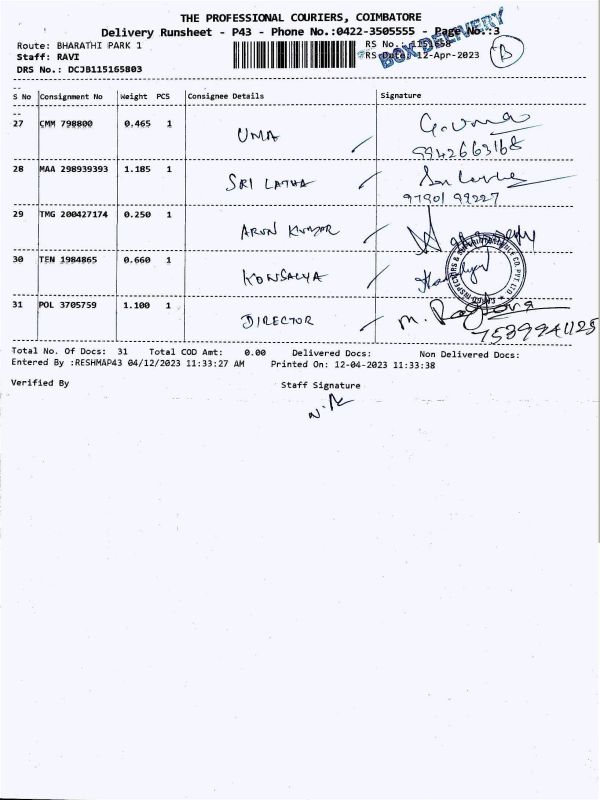 THE PROFESSIONAL COURIERS, COIMBATORE
Delivery Runsheet - P43 - Phone No.:0422-3505555 - Page No.:3
BOX DELIVERY
Route: BHARATHI PARK 1 RS No.: 1151658
Staff: RAVI RS Date: 12-Apr-2023 B
DRS No.: DCJB115165803
S No Consignment No Weight PCS Consignee Details Signature
27 CMM 798800 0.465 1 UMA G. Uma
9942663168
28 MAA 298939393 1.185 1 SRI LATHA Sri Latha
97901 99227
29 TMG 200427174 0.250 1 ARUN KUMAR
30 TEN 1984865 0.660 1 KONSALYA
31 POL 3705759 1.100 1 DIRECTOR M.
Total No. Of Docs: 31 Total COD Amt: 0.00 Delivered Docs: Non Delivered Docs:
Entered By :RESHMAP43 04/12/2023 11:33:27 AM Printed On: 12-04-2023 11:33:38
Verified By Staff Signature